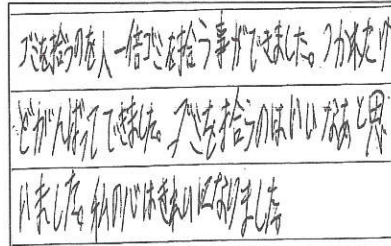 ゴミを拾うのを人一倍ゴミを拾う事ができました。つかれたけ
どがんばってできました。ゴミを拾うのはいいなあと思
いました。私の心はきれいになりました。